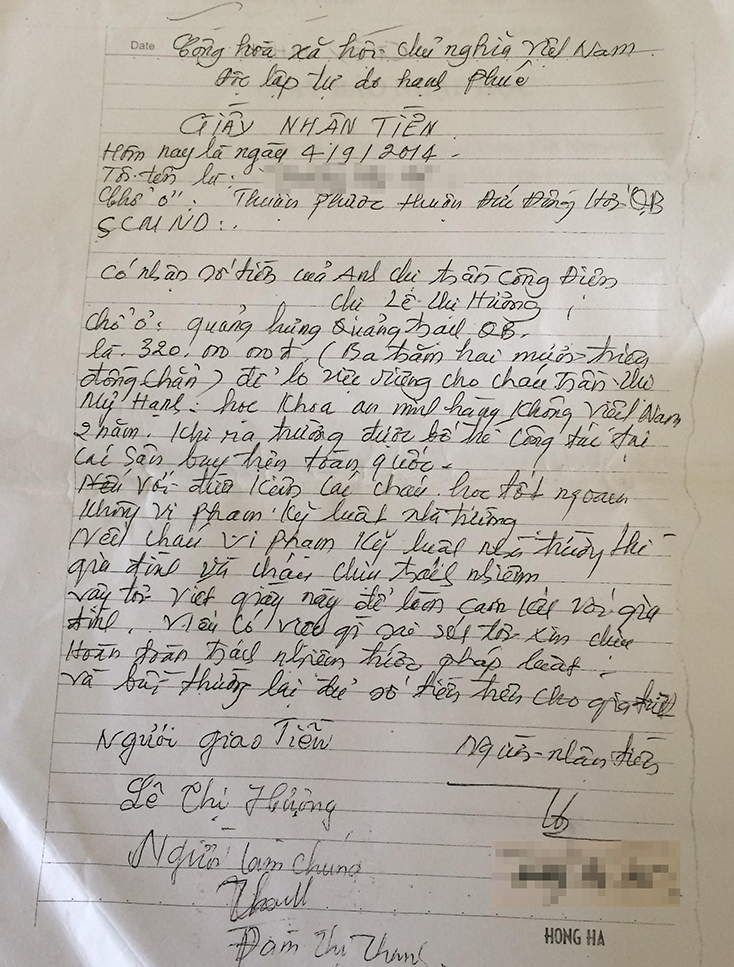 Date Cộng hoà xã hội chủ nghĩa Việt Nam
Độc lập tự do hạnh phúc
GIẤY NHÂN TIỀN
Hôm nay là ngày 4/9/2014 -
Tôi tên là:
Chổ ở: Thuận phước thuận Đức Đồng Hới QB
SCMND:.
Có nhận số tiền của Anh chị trần Công Điền
Chị Lê thị Hường
Chổ ở: quảng hưng Quảng trạch QB.
là. 320.000 000đ. (Ba trăm hai mươi triệu
đồng chẵn) để lo việc riêng cho cháu trần thị
Mỹ Hạnh: học Khoa an ninh hàng không Việt Nam
2 năm. Khi ra trường được bố trí công tác tại
các sân bay trên toàn quốc -
với điều kiện các cháu học tốt ngoan
không vi phạm kỷ luật nhà trường
Nếu cháu vi phạm kỷ luật nhà trường thì
gia đình và cháu chịu trách nhiệm
vậy tôi viết giấy này để làm cam kết với gia
đình. Nếu có việc gì sai sót tôi xin chịu
Hoàn toàn trách nhiệm trước pháp luật
và bồi thường lại đủ số tiền trên cho gia đình
Người giao Tiền
Người nhận tiền
Lê Thị Hường
Người làm chứng
Đàm Thị Thanh
HONG HA